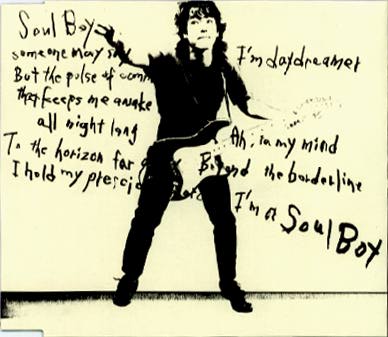 Soul Boy
someone may say
But the pulse of
that keeps me awake
all night long
To the horizon far
I hold my
I'm daydreamer
Ah, in my mind
Beyond the borderline
I'm a Soul Boy